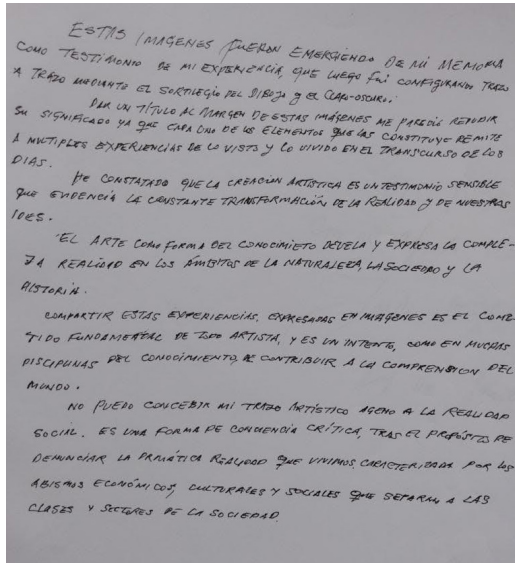 ESTAS IMAGENES FUERON EMERGIENDO DE MI MEMORIA
COMO TESTIMONIO DE MI EXPERIENCIA, QUE LUEGO FUI CONFIGURANDO TRAZO
A TRAZO MEDIANTE EL SORTILEGIO DEL DIBUJO Y EL CLARO-OSCURO.
DAR UN TÍTULO AL MARGEN DE ESTAS IMÁGENES ME PARECIÓ REDUCIR
SU SIGNIFICADO YA QUE CADA UNO DE LOS ELEMENTOS QUE LAS CONSTITUYE REMITE
A MULTIPLES EXPERIENCIAS DE LO VISTO Y LO VIVIDO EN EL TRANSCURSO DE LOS
DIAS.
HE CONSTATADO QUE LA CREACION ARTÍSTICA ES UN TESTIMONIO SENSIBLE
QUE EVIDENCIA LA CONSTANTE TRANSFORMACIÓN DE LA REALIDAD Y DE NUESTROS
IDES.
EL ARTE COMO FORMA DEL CONOCIMIETO DEVELA Y EXPRESA LA COMPLE-
JA REALIDAD EN LOS ÁMBITOS DE LA NATURALEZA, LA SOCIEDAD Y LA
HISTORIA.
COMPARTIR ESTAS EXPERIENCIAS, EXPRESADAS EN IMÁGENES ES EL COME-
TIDO FUNDAMENTAL DE TODO ARTISTA, Y ES UN INTENTO, COMO EN MUCHAS
DISCIPLINAS DEL CONOCIMIENTO, DE CONTRIBUIR A LA COMPRENSION DEL
MUNDO.
NO PUEDO CONCEBIR MI TRAZO ARTÍSTICO AGENO A LA REALIDAD
SOCIAL. ES UNA FORMA DE CONCIENCIA CRÍTICA, TRAS EL PROPÓSITO DE
DENUNCIAR LA REALIDAD QUE VIVIMOS, CARACTERIZADA POR LOS
ABISMOS ECONÓMICOS, CULTURALES Y SOCIALES QUE SEPARAN A LAS
CLASES Y SECTORES DE LA SOCIEDAD.